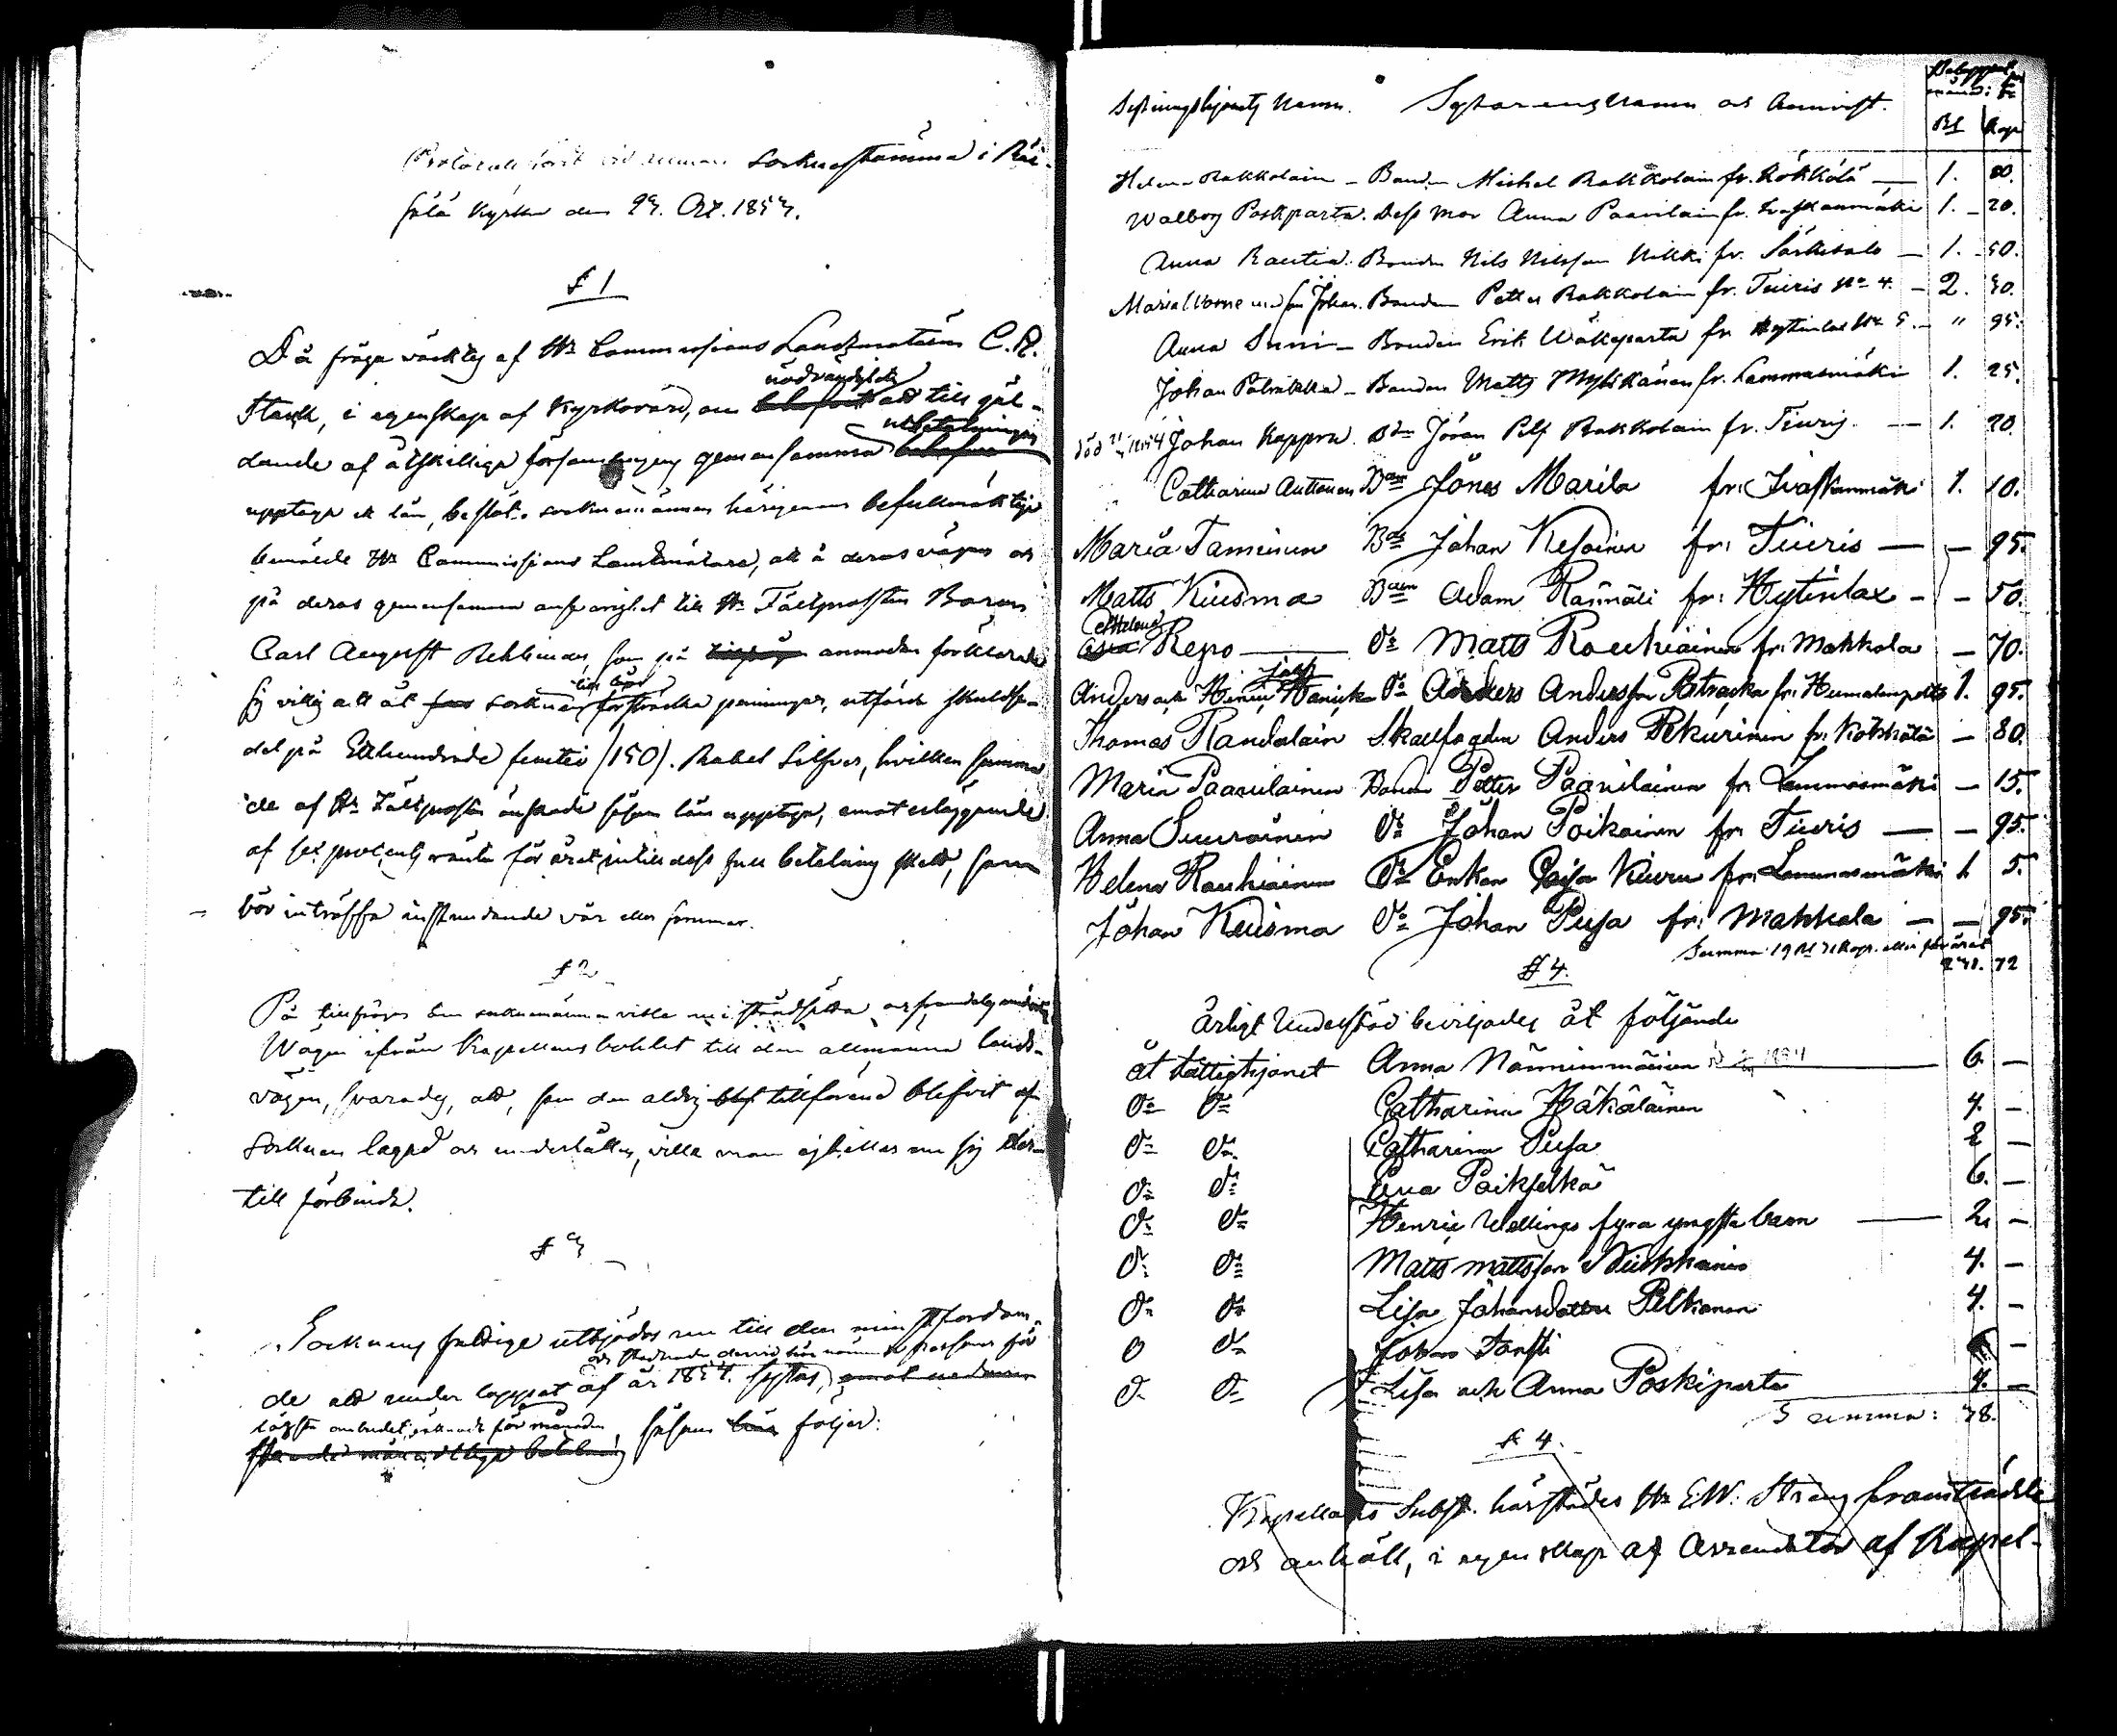 Protocoll fördt vid allmän Socknestämma i Räi-
sälä Kyrka den 23. Oct. 1853.
§ 1
Då fråga väcktes af Hr Commissions Landtmätaren C. R.
nödvändigheten
Stenk, i egenskap af Kyrkovärd, om behofvet att till gäl-
utbetalningar
dande af åtskilliga församlingens gemensamma behofver
upptaga ett lån, beslöto sockne männen härigenom befullmäktiga
bemälde Hr Commissions Landtmätare, att å deras vägnar och
på deras gemensamma ansvarighet till Hr Fältprosten Baron
Carl August Rehbinder, som på anmodan förklarade
till lån
sig villig att åt socknen försträcka penningar, utfärda skuldse-
del på Etthundrade femtio /150/. Rubel Silfver, hvilken summa
de af Hr Fältprosten önskade såsom lån upptaga, emot erläggande
af sex procents ränta för året, intill dess full betalning skett, som
bör inträffa instundande vår eller sommar.
§ 2
På tillfrågan om socknemännen ville i ståndsätta och framdeles underhålla
Vägen ifrån Kapellans bohlet till den allmänna lands-
vägen, svarades, att, som den aldrig blif tillförene blefvit af
Socknen lagad och underhållen, ville man ej heller nu sig der-
till förbinda.
§ 3
Socknens fattige utbjödos nu till den minstfordran-
och stadnade dervid hos nämnde personer för
de att under loppet af år 1854. skötas, emot nedan
lägsta anbudet, räknadt för månaden, såsom här följer:
stående månadtliga betalning
Sytningshjonets Namn. Sytarens Namn och Hemvist.
Beloppet för
månad: Sr
Rbl Kop
Helena Rakkolain – Bonden Michel Rakkolain fr. Kökkölä — 1. 80.
Walborg Poskparta. Dess mor Anna Paavilain fr. Ivaskanmäki 1. – 20.
Anna Rautia. Bonden Nils Nilsson Nikki fr. Särkisalo — 1. – 50.
Maria Worne med son Johan. Bonden Petter Rakkolain fr. Tiuris No 4. – 2. 50.
Anna Suni – Bonden Erik Wäkeparta fr. Hytinlax No 5. – " 95.
Johan – Bonden Matts Myllikäinen fr. Lammasmäki 1. 25.
död 21/4 1854 Johan Kappra. Bdn Jöran Pilf Rakkolain fr. Tiuris. — 1. 20.
Catharina Auttonen Bden Jönes Marila fr: Ivaskanmäki 1. 10.
Maria Tamminen Bdn Johan Kesoinen fr: Tiuris — — 95.
Matts Kuisma Bden Adam Rämäli fr: Hytinlax – – 50.
Helena
Repo — Do Matts Rouhiainen fr. Makkola — 70.
Anders och Henric Do Anders Andersson fr. Heimolanpelto 1. 95.
Thomas Randalain Skallfogden Anders Pekurinen fr. Kökkölä — 80.
Maria Paavilainen Bonden Petter Paavilainen fr. Lammasmäki — 15.
Anna Suurainen Do Johan Poikainen fr. Tiuris — — 95.
Helena Rouhiainen Do Enkan Caisa Kiuru fr: Lammasmäki 1. 5.
Johan Kuisma Do Johan Pusa fr: Makkola — — 95.
Summa 19 Rbl 71 Kop. eller för året
231. 72
§ 4.
Årligt Understöd beviljades åt följande
åt fattighjonet Anna Närmimmäinen 1854 — 6. —
Do Do Catharina Häkäläinen 4. —
Do Do Catharina Pusa 2 —
Do Do Eva Paikselkä 6. —
Do Do Henric Wellings fyra yngsta barn — 2. —
Do Do Matts Mattsson 4. —
Do Do Lisa Johansdotter Pelkonen 4. —
D Do Johan Tanski —
Do Do Lisa och Anna Poskiparta 4. —
Summa: 38.
§ 4.
Kapellans Subst. härstädes Hr E.W. Streng framträdde
och anhöll, i egenskap af Arrendator af Kapel-